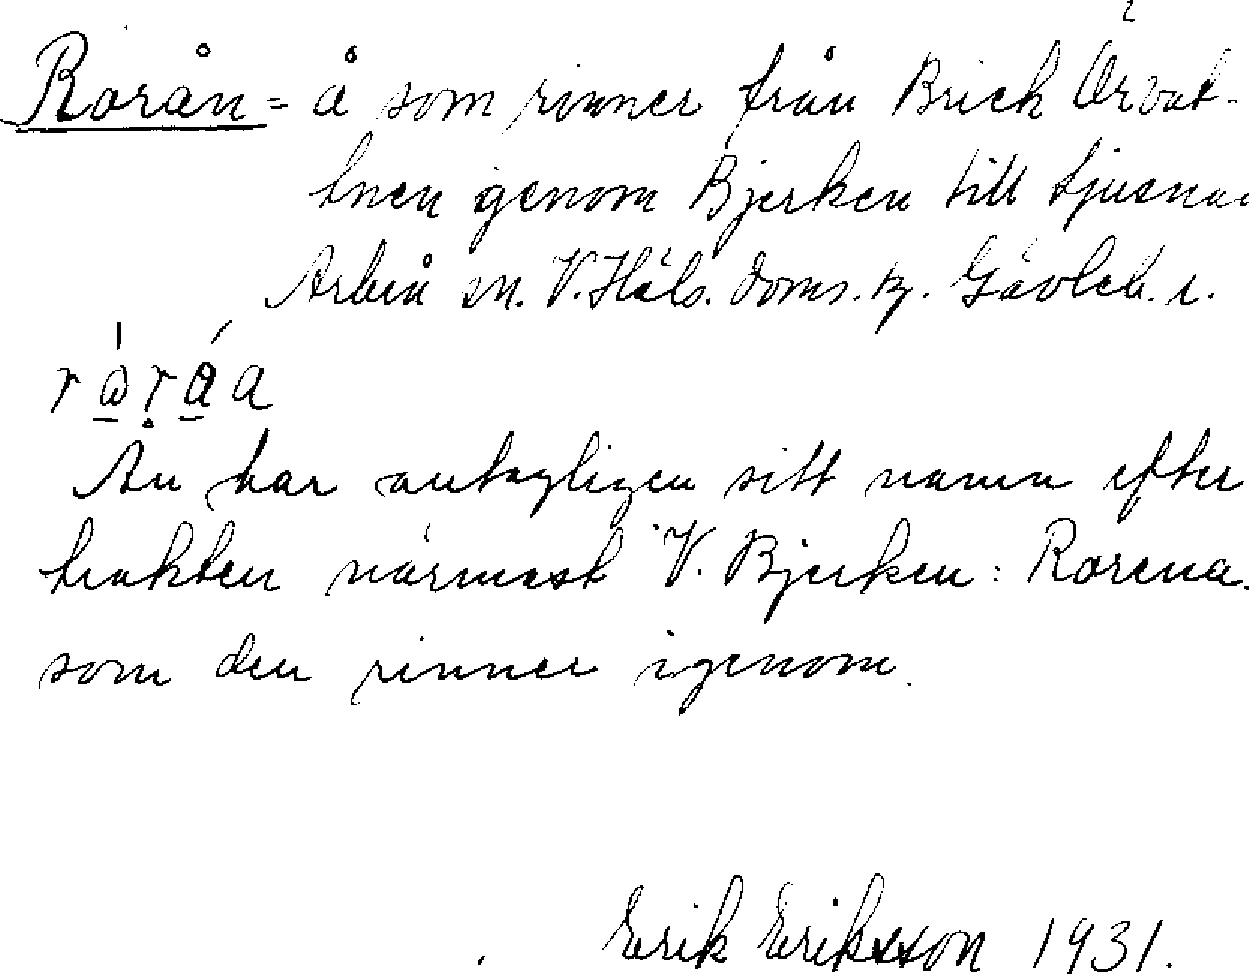 Rorån = å som rinner från Brick Örvat-
tnen genom Bjerken till Ljusnan
Arbrå sn. V. Häls. doms. Gävleb. l.
Ån har antagligen sitt namn efter
trakten närmast V. Bjerken: Rorena.
som den rinner igenom.
Erik Eriksson 1931.